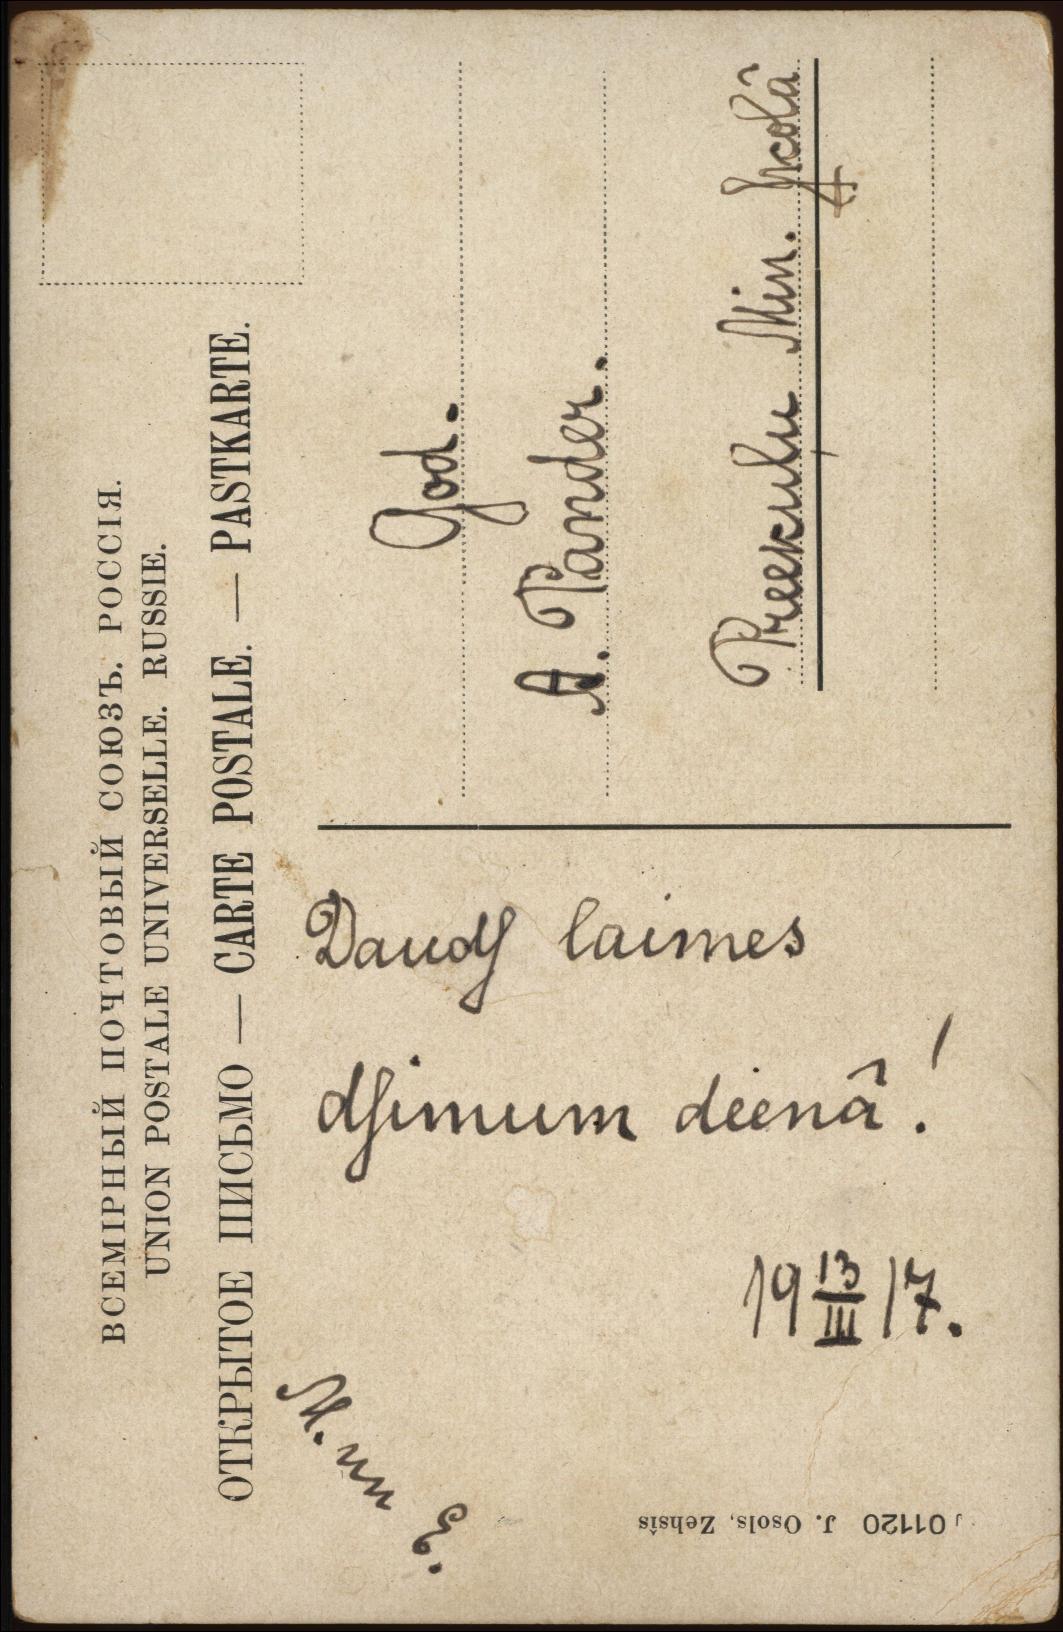 ВСЕМІРНЫЙ ПОЧТОВЫЙ СОЮЗЪ. РОССІЯ.
UNION POSTALE UNIVERSELLE. RUSSIE.
ОТКРЫТОЕ ПИСЬМО — CARTE POSTALE. — PASTKARTE.
God.
A. Pander.
Preekuļu Min. ſkolâ
Daudſ laimes
dſimum deenâ!
19 13/III 17.
M. un E.
01120 J. Osols, Zehsîs